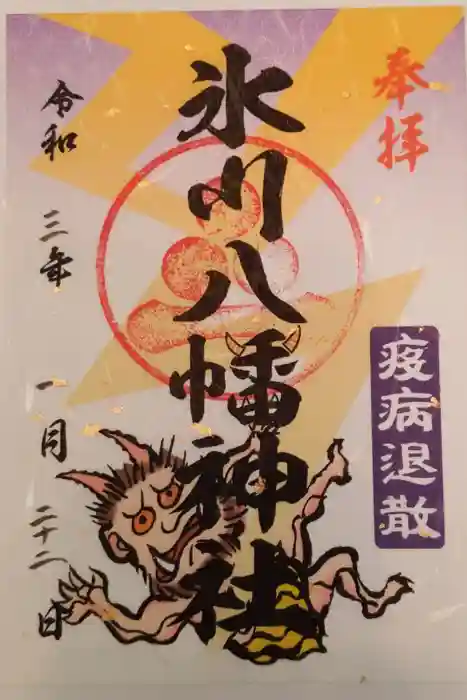 奉拝
疫病退散
氷川八幡神社
令和三年一月二十二日